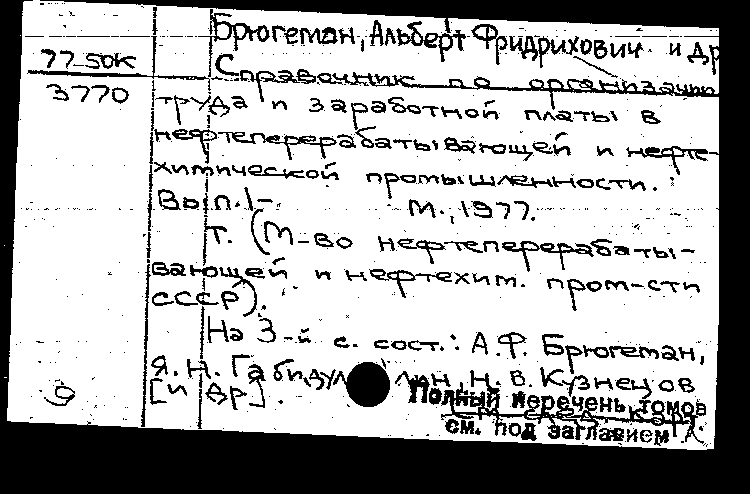 Брюгеман, Альберт Фридрихович и др
77-50к
Справочник по организации
3770
труда и заработной платы в
нефтеперерабатывающей и нефте-
химической промышленности.
Вып. 1-. М., 1977.
т. (М-во нефтеперерабаты-
вающей и нефтехим. пром-сти
СССР).
На 3-й с. сост.: А.Ф. Брюгеман,
Я.Н. Габидуллин, Н.В. Кузнецов
[и др].
Полный перечень томов
см. след. карт.
см. под заглавием